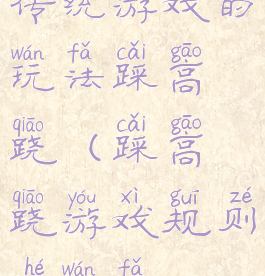 传统游戏的
wán fǎ cǎi gāo
玩法踩高
qiāo cǎi gāo
跷（踩高
qiāo yóu xì guī zé
跷游戏规则
hé wán fǎ